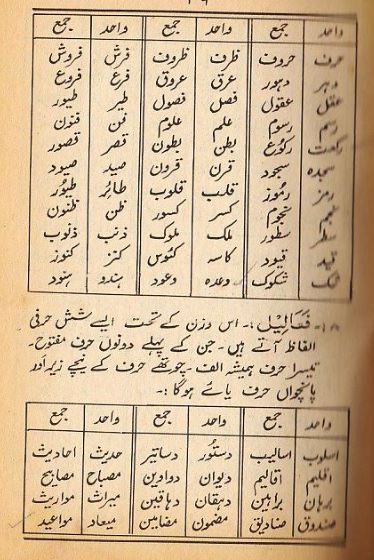 واحد جمع واحد جمع واحد جمع
حرف حروف ظرف ظروف فرش فروش
دہر دہور عرق عروق فرع فروع
عقل عقول فصل فصول طیر طیور
رسم رسوم علم علوم فن فنون
رکعت رکوع بطن بطون قصر قصور
سجدہ سجود قرن قرون صید صیود
رمز رموز قلب قلوب طائر طیور
نجم نجوم کسر کسور ظن ظنون
سطر سطور ملک ملوک ذنب ذنوب
قید قیود کاسہ کئوس کنز کنوز
شک شکوک وعدہ وعود ہندو ہنود
۱۸۔ فَعَالِیْل :۔ اس وزن کے تحت ایسے شش حرفی
الفاظ آتے ہیں۔ جن کے پہلے دونوں حرف مفتوح۔
تیسرا حرف ہمیشہ الف۔ چوتھے حرف کے نیچے زیر اور
پانچواں حرف یائے ہوگا :۔
واحد جمع واحد جمع واحد جمع
اسلوب اسالیب دستُور دساتیر حدیث احادیث
اقلیم اقالیم دیوان دواوین مصباح مصابیح
برہان براہین دہقان دہاقین میراث مواریث
صندوق صنادیق مضمون مضامین میعاد مواعید